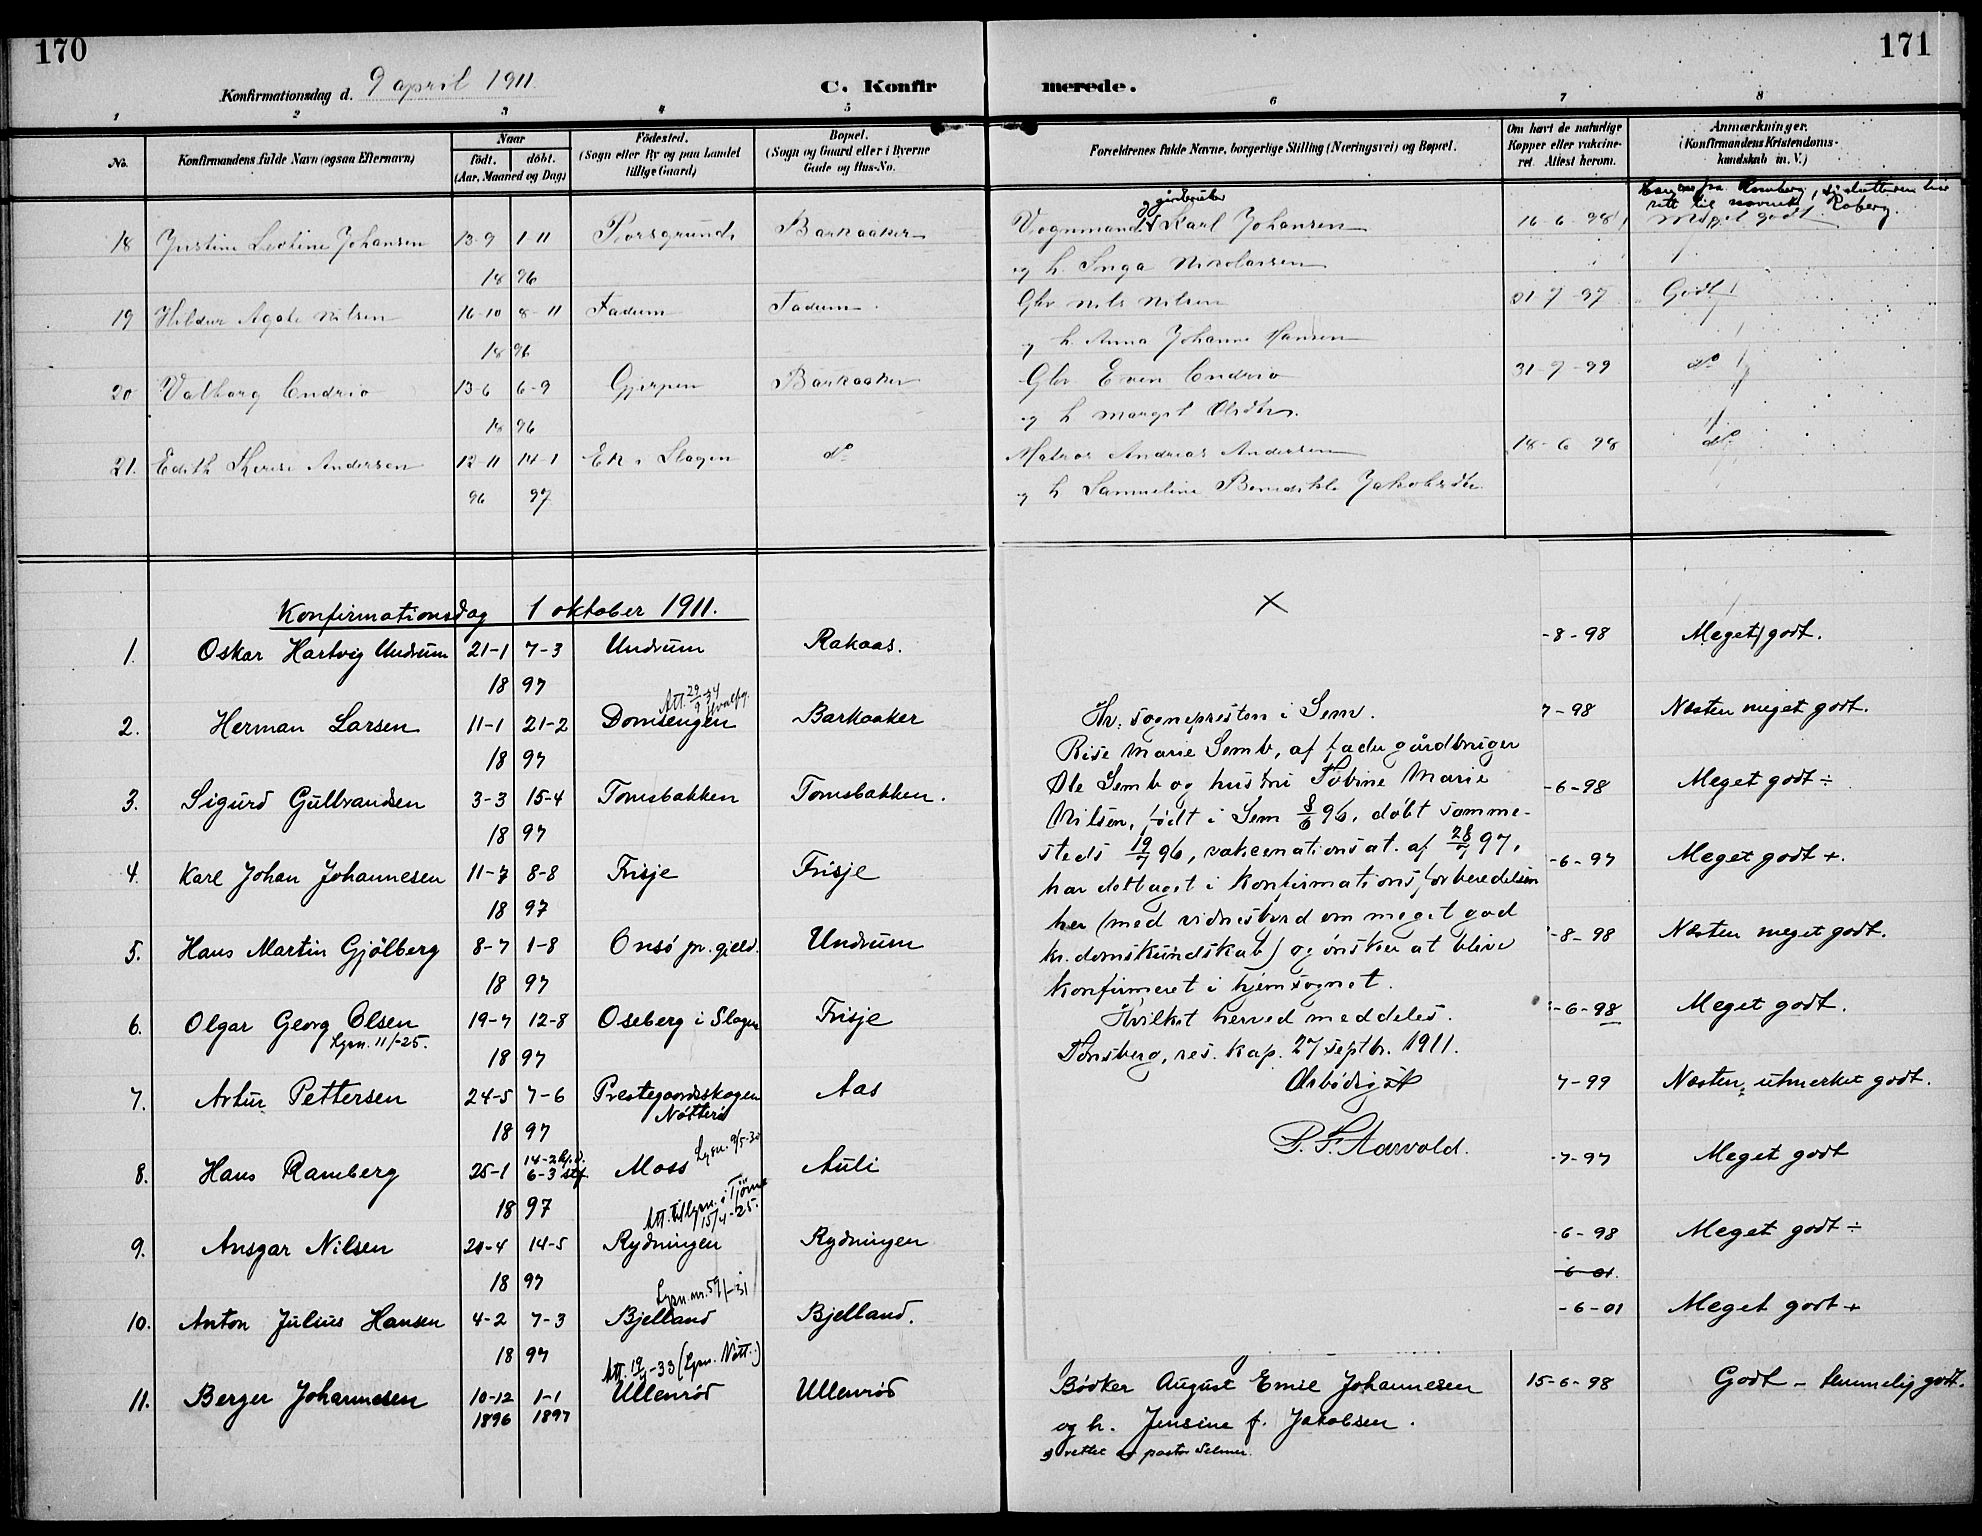 170
171
Konfirmationsdag d. 9 april 1911.
C. Konfir
merede.
1 2 3 4 5 6 7 8
No.
Konfirmandens fulde Navn (ogsaa Efternavn)
Naar
født. døbt.
(Aar, Maaned og Dag)
Fødested.
(Sogn eller By og paa Landet
tillige Gaard)
Bopæl.
(Sogn og Gaard eller i Byerne
Gade og Hus-No.
Forældrenes fulde Navne, borgerlige Stilling (Næringsvei) og Bopæl.
Om havt de naturlige
Kopper eller vakcine-
ret. Attest herom.
Anmærkninger.
(Konfirmandens Kristendoms-
kundskab m. V.)
rett til navnet Roberg.
og gårdbruker
18 Justine Leotine Johansen 13-9 1-11 Porsgrund Barkaaker Vognmand Karl Johansen 16-6-98 Meget godt
18 96 og h. Inga Nikolaisen
19 Hildur Agate Nilsen 16-10 8-11 Fadum Fadum Gbr Nils Nilsen 01-7-97 Godt
18 96 og h. Anna Johanne Hansen
20 Valborg Endrio 13-6 6-9 Gjerpen Barkaaker Gbr Even Endrio 31-7-99 do
18 96 og h Margit Olsdtr.
21. Edith Therese Andersen 12-11 14-1 Ek i Slagen do Matros Andreas Andersen 18-6-98 do
96 97 og h Samueline Benedikte Jakobsdtr.
Konfirmationsdag 1 oktober 1911.
×
1. Oskar Hartvig Undrum 21-1 7-3 Undrum Rakaas. -8-98 Meget godt.
18 97
Att. 29/9-34
2. Herman Larsen 11-1 21-2 Domsengen Barkaaker 7-98 Næsten meget godt.
18 97
3. Sigurd Gulbrandsen 3-3 15-4 Tomsbakken Tomsbakken. -6-98 Meget godt ÷
18 97
4. Karl Johan Johannesen 11-7 8-8 Frisje Frisje -6-97 Meget godt +.
18 97
5. Hans Martin Gjølberg 8-7 1-8 Onsø pr.gjeld. Undrum -8-98 Næsten meget godt.
18 97
6. Olgar Georg Olsen 19-7 12-8 Oseberg i Slagen Frisje -6-98 Meget godt.
Lysn. 11/-25.
18 97
7. Artur Pettersen 24-5 7-6 Prestegaardsskogen Aas 7-99 Næsten utmerket godt.
Nøtterø
18 97
Lysn. 9/5-30
8. Hans Ramberg 25-1 14-2 hj.d. 6-3 stf. Moss Auli -7-97 Meget godt
18 97
Att. til lysn. i Tjøme 15/4-25.
9. Ansgar Nilsen 20-4 14-5 Rydningen Rydningen -6-98 Meget godt ÷
18 97 -6-01.
Lysn. nr. 59/-31
10. Anton Julius Hansen 4-2 7-3 Bjelland Bjelland. -6-01 Meget godt +
18 97
Att. 19/9-33 (Lysn. Nøtt.)
11. Berger Johannesen 10-12 1-1 Ullenrød Ullenrød Bødker August Emil Johannesen 15-6-98 Godt - temmelig godt.
1896 1897 og h. Jensine f. Jakobsen.
rettet av pastor Selmer.
Hr. sognepresten i Sem.
Rise Marie Semb, af fader gårdbruger
Ole Semb og hustru Tobine Marie
Nilsen, født i Sem 8/6 96, døbt samme-
steds 19/7 96, vakcernationsat. af 28/7 97,
har deltaget i konfirmationsforberedelsen
her (med vidnesbyrd om meget god
kr.domskundskab) og ønsker at blive
konfirmeret i hjemsognet.
Hvilket herved meddeles.
Tønsberg, res. kap. 27 septbr. 1911.
Ærbødigst
P. F. Aarvold.